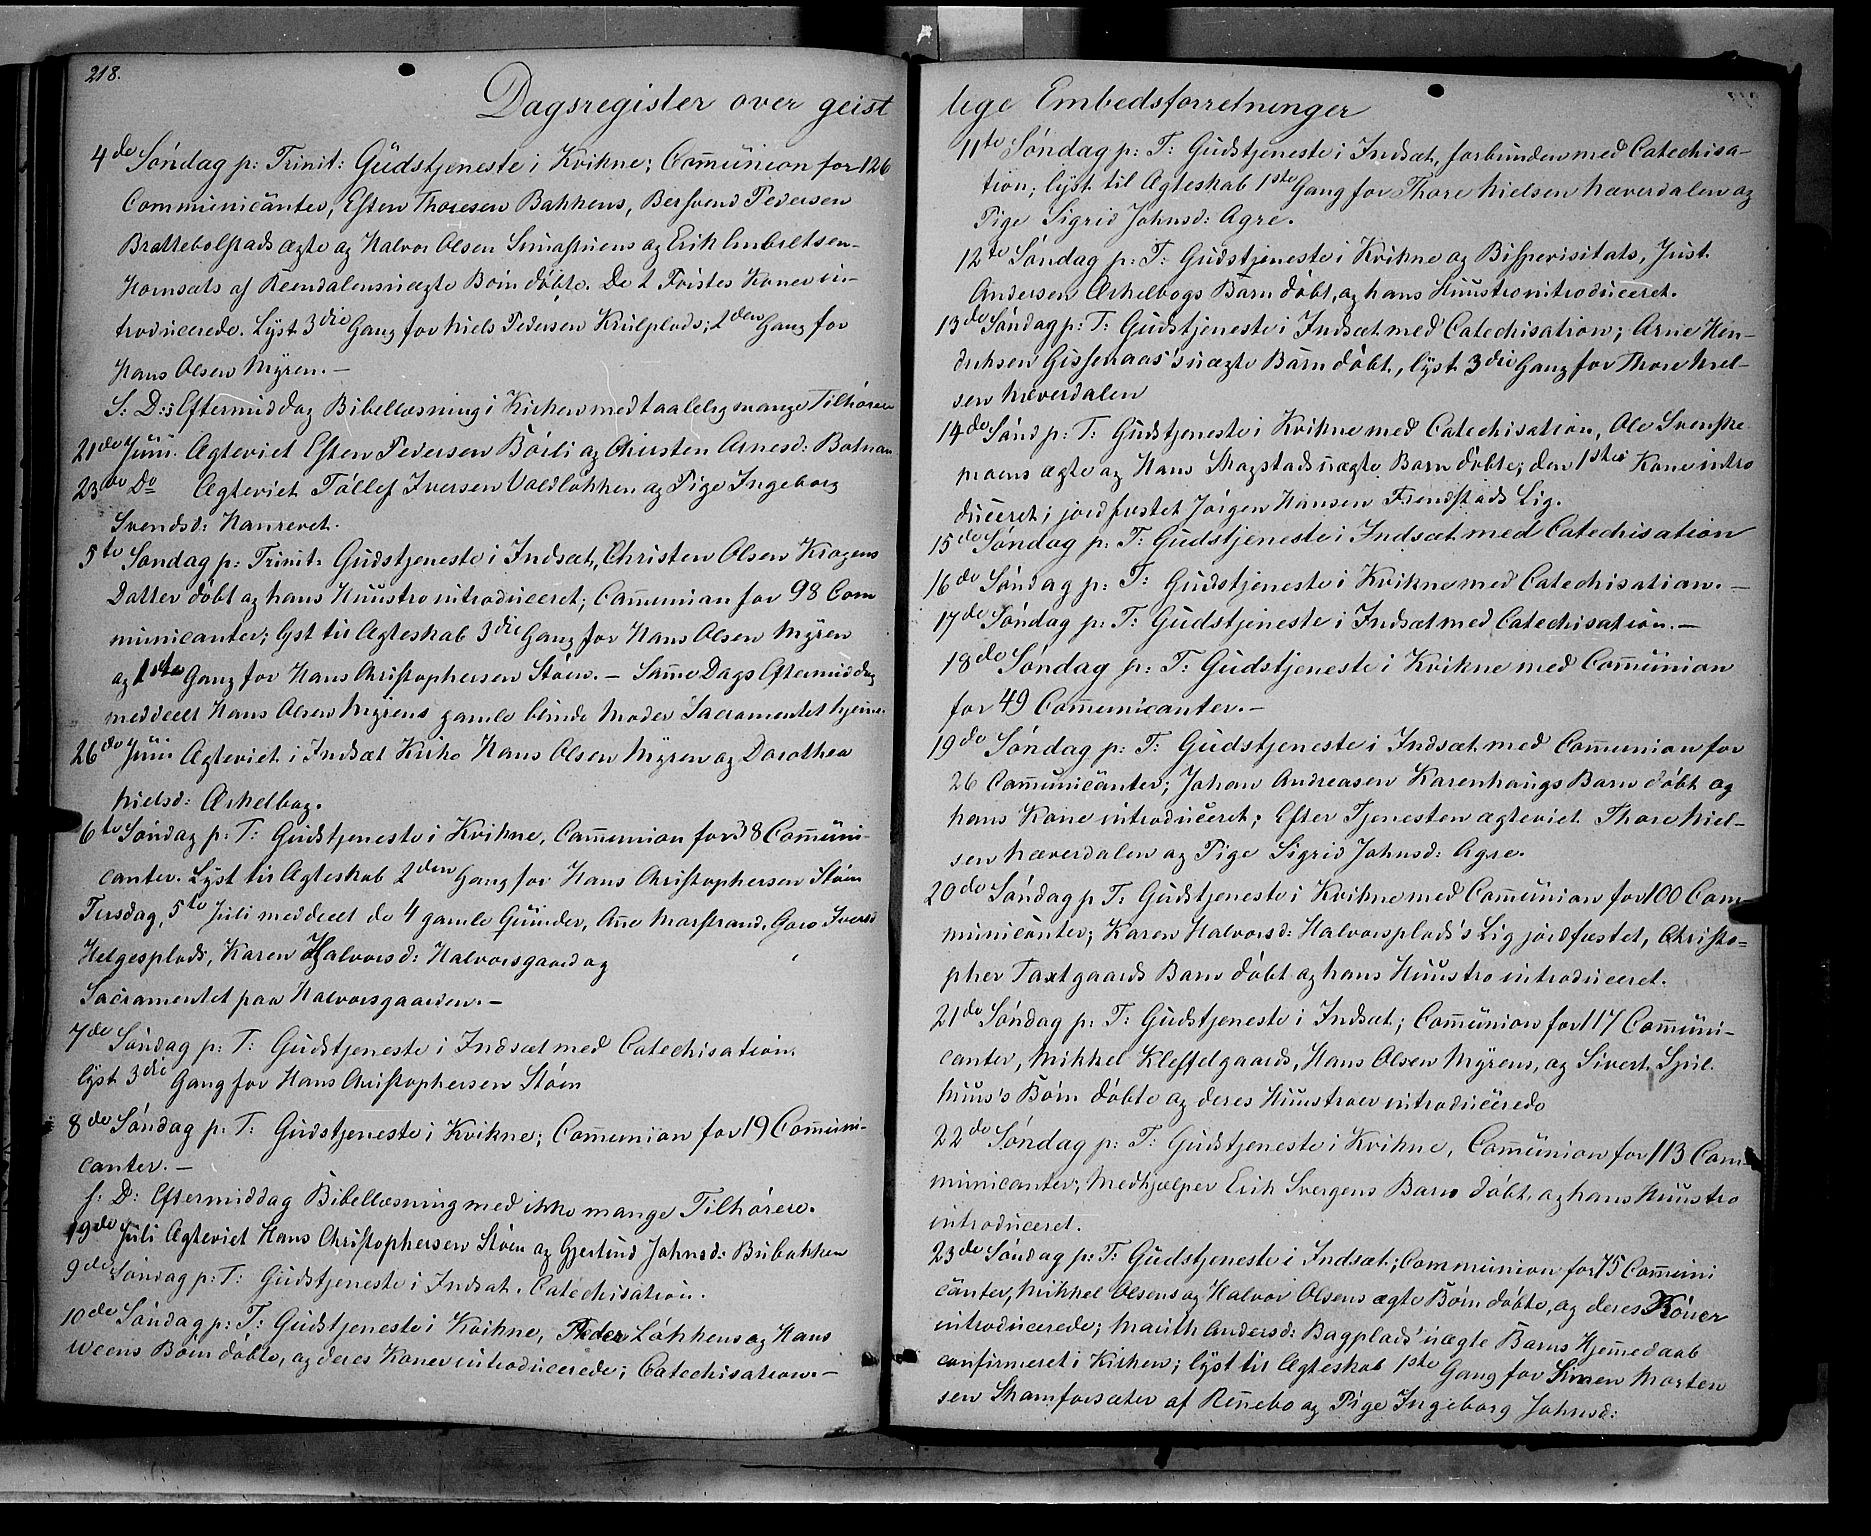 218.
Dagsregister over geist
4de Søndag p: Trinit: Gudstjeneste i Kvikne; Comunion for 126
Communicanter, Esten Thoresen Bakkens, Bersvend Pedersen
Brattebolstads ægte og Halvor Olsen Smuastuens og Erik Embretsen
Hornsæts af Reendalen uægte Børn døbte. De 2 Førstes Koner in-
troducerede. Lyst 3die Gang for Niels Pedersen Krulplads; 2den Gang for
Hans Olsen Myren. —
S: D: Eftermiddag Bibellæsning i Kirken med taalelig mange Tilhørere
21de Juni. Ægteviet Esten Pedersen Bøili og Chirsten Arnesd: Botnan
23de Do Ægteviet Tøllef Iversen Voldløkken og Pige Ingeborg
Svendsd: Hanrevet.
5te Søndag p: Trinit: Gudstjeneste i Indsæt, Christen Olsen Kragens
Datter døbt og hans Huustro introduceret; Comunion for 98 Com
municanter; lyst til Ægteskab 3die Gang for Hans Olsen Myren
og 1ste Gang for Hans Christophersen Støen. — Same Dags Eftermiddag
meddeelt Hans Olsen Myrens gamle blinde Moder Sacramentet hjeme.
26de Juni Ægteviet i Indsæt Kirke Hans Olsen Myren og Dorothea
Nielsd: Arkelbog.
6te Søndag p: T: Gudstjeneste i Kvikne, Comunion for 38 Comuni-
canter. Lyst til Ægteskab 2den Gang for Hans Christophersen Støen
Tirsdag, 5te Juli meddeelt de 4 gamle Qvinder, Ane Marstrand, Goro Iversd
Helgesplads, Karen Halvorsd: Halvorsgaard og
Sacramentet paa Halvorsgaarden. —
7de Søndag p: T: Gudstjeneste i Indsæt med Catechisation.
lyst 3die Gang for Hans Christophersen Støen
8de Søndag p: T: Gudstjeneste i Kvikne; Comunion for 19 Comuni-
canter. —
S: D: Eftermiddag Bibellæsning med ikke mange Tilhørere.
19de Juli Ægteviet Hans Christophersen Støen og Gjertrud Johnsd: Bubakken
9de Søndag p: T: Gudstjeneste i Indsæt. Catechisation.
10de Søndag p: T: Gudstjeneste i Kvikne, Peder Løkkens og Hans
Weens Børn døbte, og deres Koner introducerede; Catechisation. —
lige Embedsforretninger
11te Søndag p: T: Gudstjeneste i Indsæt, forbunden med Catechisa-
tion; lyst til Ægteskab 1ste Gang for Thore Nielsen Næverdalen og
Pige Sigrid Johnsd: Agre.
12te Søndag p: T: Gudstjeneste i Kvikne og Bispevisitats, Just
Andersen Arkelbogs Barn døbt, og hans Huustro introduceret.
13de Søndag p: T: Gudstjeneste i Indsæt med Catechisation; Arne Hen-
driksen Gissenaas's uægte Barn døbt, lyst 3die Gang for Thore Niel-
sen Næverdalen
14de Sønd p: T: Gudstjeneste i Kvikne med Catechisation, Ole Svenske-
moens ægte og Hans Skogstads uægte Barn døbte; den 1stes Kone intro
duceret; jordfæstet Jørgen Hansen Frendstads Lig.
15de Søndag p: T: Gudstjeneste i Indsæt med Catechisation
16de Søndag p: T: Gudstjeneste i Kvikne med Catechisation. —
17de Søndag p: T: Gudstjeneste i Indsæt med Catechisation. —
18de Søndag p: T: Gudstjeneste i Kvikne med Comunion
for 49 Comunicanter. —
19de Søndag p: T: Gudstjeneste i Indsæt med Comunion for
26 Comunicanter; Johan Andreasen Karenhaugs Barn døbt og
hans Kone introduceret; Efter Tjenesten ægteviet Thore Niel-
sen Næverdalen og Pige Sigrid Johnsd: Agre.
20de Søndag p T: Gudstjeneste i Kvikne med Comunion for 100 Com-
municanter; Karen Halvorsd: Halvorsplads's Lig jordfæstet, Christo=
pher Taxtgaards Barn døbt og hans Huustro introduceret.
21de Søndag p: T: Gudstjeneste i Indsæt; Comunion for 117 Comuni-
canter, Mikkel Kleffelgaards, Hans Olsen Myrens, og Sivert Spil-
huus's Børn døbte og deres Huustroer introducerede
22de Søndag p: T: Gudstjeneste i Kvikne, Comunion for 113 Com-
municanter; Medhjælper Erik Svergens Barn døbt, og hans Huustro
introduceret.
23de Søndag p: T: Gudstjeneste i Indsæt; Communion for 75 Comuni
canter, Mikkel Olsens og Halvor Olsens ægte Børn døbte, og deres Koner
introducerede; Marith Andersd: Bagplads' uægte Barns Hjemedaab
confirmeret i Kirken; lyst til Ægteskab 1ste Gang for Simen Morten
sen Skamforsæter af Rennebo og Pige Ingeborg Johnsd: